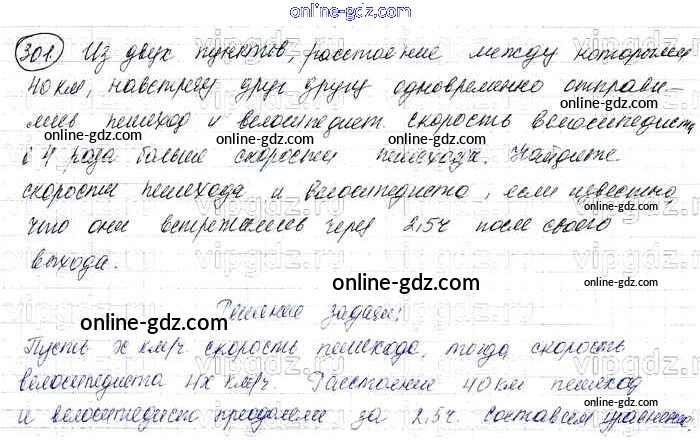 online-gdz.com
301 Из двух пунктов, расстояние между которыми
40 км, навстречу друг другу одновременно отправи-
лись пешеход и велосипедист. Скорость велосипедиста
в 4 раза больше скорости пешехода. Найдите
скорости пешехода и велосипедиста, если известно,
что они встретились через 2,5ч после своего
выхода.
online-gdz.com
Решение задачи:
Пусть x км/ч скорость пешехода, тогда скорость
велосипедиста 4x км/ч. Расстояние 40 км пешеход
и велосипедист преодолели за 2,5ч. составим уравнение.